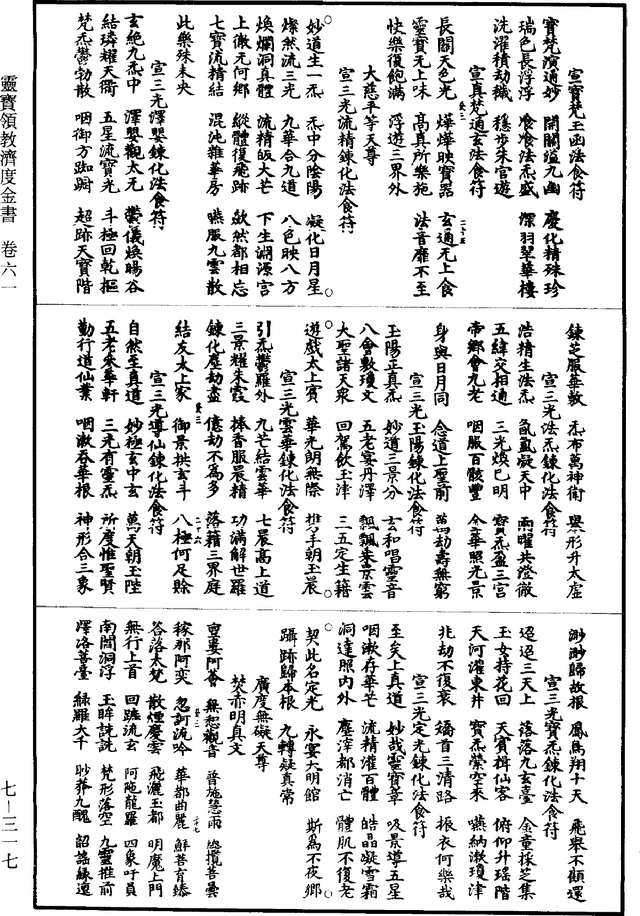 宣寶梵玉函法食符
寶梵演通妙　開闢溢九幽　慶化精殊珍
瑞色長浮浮　飡飡法炁盛　深羽翠華樓
洗濯積劫穢　穩步朱宮遊
宣真梵通玄法食符
長闇天色光　燁燁映寶器　玄通无上食
靈寶无上味　高真所樂施　法音靡不至
快樂復飽滿　浮遊三界外
大慈平等天尊
宣三光流精鍊化法食符
妙道生一炁　炁中分陰陽　凝化日月星
燦然流三光　九華合九道　八色映八方
煥爛洞真體　流精皈大芒　下生淵源宮
上徹无何鄉　縱體復飛跡　歛然都相忘
七寶流精結　混沌雜華房　嚥服九雲散
此樂殊未央
宣三光澤嬰鍊化法食符
玄絶九炁中　澤嬰觀太元　鬱儀煥暘谷
結璘耀天衢　五星流寶光　斗極回乾樞
梵炁鬱勃散　咽御方踟蹰　超跡天寶階
鍊芝服華散　炁布萬神衛　與形升太虛
宣三光法炁鍊化法食符
浩精生法炁　氤氲凝天中　兩曜共澄徹
五緯交相通　三光煥已明　寶炁盈三宮
帝鄉會九老　咽服百骸豐　金華照光景
身與日月同　念道上聖前　萬劫壽無窮
宣三光玉陽鍊化法食符
玉陽正真炁　妙道三景分　玄和唱靈音
八會數瓊文　五老宴丹澤　飄飄乘景雲
大聖諸天衆　回駕飲玉津　三五定生籍
遊戲太上賓　華光朗無際　携手朝玉晨
宣三光雲華鍊化法食符
引炁鬱羅外　九芒結雲華　七晨高上道
三景耀朱霞　捧香服晨精　功滿解世羅
鍊化塵劫盡　億劫不為多　落籍三界庭
結友太上家　御景拱玄斗　八極何足賒
宣三光導仙鍊化法食符
自然至真道　妙極玄中玄　萬天朝玉陛
五老乘華軒　三光有靈炁　所度惟聖賢
勤行道仙業　咽漱吞華根　神形合三象
渺渺歸故根　鳳鳥翔十天　飛舉不顧還
宣三光寶炁鍊化法食符
迢迢三天上　落落九玄臺　金童採芝集
玉女持花回　天賓揖仙客　俯仰升瑤階
天河濯東井　寶炁縈空來　嚥納漱瓊津
兆劫不復衰　稽首三清路　振衣何樂哉
宣三光定光鍊化法食符
至矣上真道　妙哉靈寶章　吸景導五星
咽漱存華芒　流精灌百體　皓晶凝雪霜
洞達照內外　塵滓都消亡　體肌不復老
契此名定光　永宴大明館　斯為不夜鄉
躡跡歸本根　九轉疑真常
廣度無礙天尊
焚赤明真文
亶婁阿薈　無惒觀音　普施慧雨　法攬菩曇
稼那阿奕　忽訶流吟　華都曲麗　鮮菩育臻
答落大梵　散煙慶雲　飛灑玉都　明魔上門
無行上首　回蹠流玄　阿陁龍羅　四象吁員
南閻洞浮　玉眸詵詵　梵形落空　九靈推前
澤洛菩臺　綠羅大千　眇莽九醜　韶謠緣邅
靈寶領教濟度金書　卷六一
七—三一七